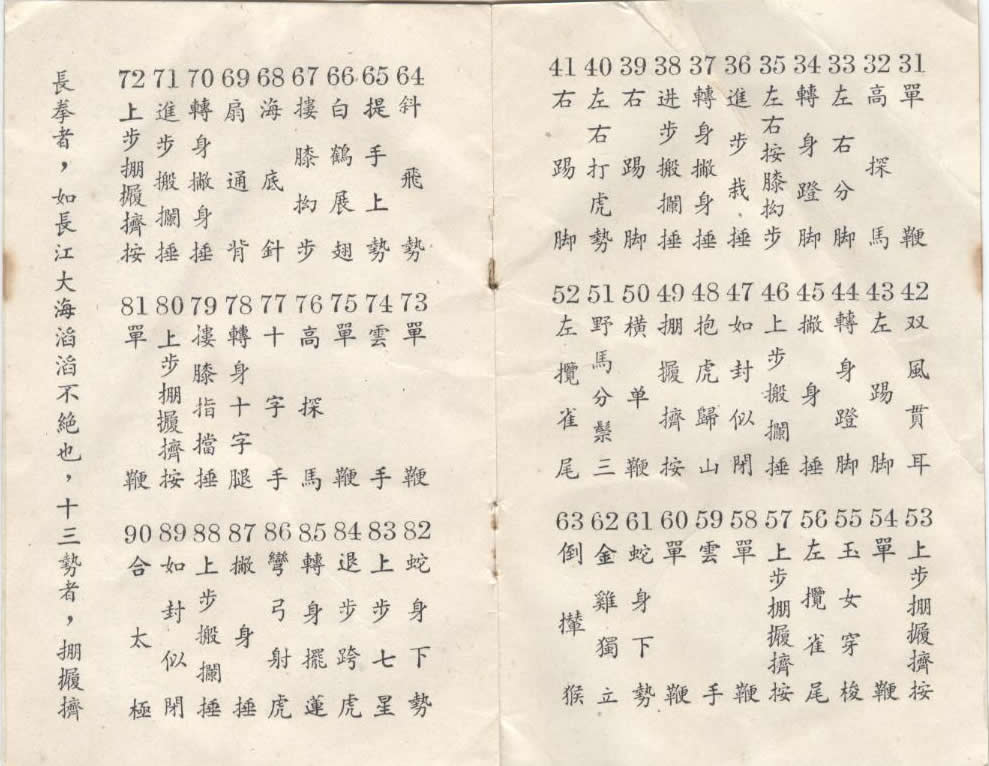 31 單鞭
32 高探馬
33 左右分脚
34 轉身蹬脚
35 左右按膝拗步
36 進步栽捶
37 轉身撇身捶
38 进步搬攔捶
39 右踢脚
40 左右打虎勢
41 右踢脚
42 双風貫耳
43 左踢脚
44 轉身蹬脚
45 撇身捶
46 上步搬攔捶
47 如封似閉
48 抱虎歸山
49 掤履擠按
50 橫单鞭
51 野馬分鬃三
52 左攬雀尾
53 上步掤履擠按
54 單鞭
55 玉女穿梭
56 左攬雀尾
57 上步掤履擠按
58 單鞭
59 雲手
60 單鞭
61 蛇身下勢
62 金雞獨立
63 倒攆猴
64 斜飛勢
65 提手上勢
66 白鶴展翅
67 摟膝拗步
68 海底針
69 扇通背
70 轉身撇身捶
71 進步搬攔捶
72 上步掤履擠按
73 單鞭
74 雲手
75 單鞭
76 高探馬
77 十字手
78 轉身十字腿
79 摟膝指擋捶
80 上步掤履擠按
81 單鞭
82 蛇身下勢
83 上步七星
84 退步跨虎
85 轉身擺蓮
86 彎弓射虎
87 撇身捶
88 上步搬攔捶
89 如封似閉
90 合太極
長拳者，如長江大海滔滔不絕也，十三勢者，掤履擠